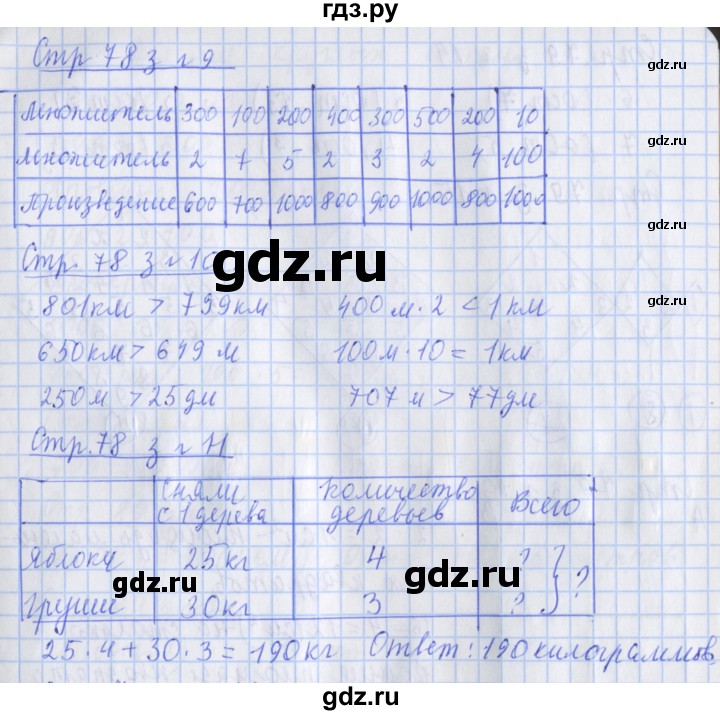 гдз.ру
Стр 78 з г 9
gdz.ru
Множитель 300 100 200 400 300 500 200 10
Множитель 2 7 5 2 3 2 4 100
gdz.ru
Произведение 600 700 1000 800 900 1000 800 1000
gdz.ru
Стр. 78 з г 10
gdz.ru
801км > 799км 400 м · 2 < 1 км
gdz.ru
650км > 649 м 100м · 10 = 1км
250м > 25 дм 707 м > 77дм
gdz.ru
Стр. 78 з г 11
gdz.ru
сняли с 1 дерева количество деревьев Всего
Яблоки 25кг 4 ?
gdz.ru gdz.ru
груши 30кг 3 ? } ?
25 · 4 + 30 · 3 = 190кг Ответ: 190 килограммов.
gdz.ru
gdz.ru